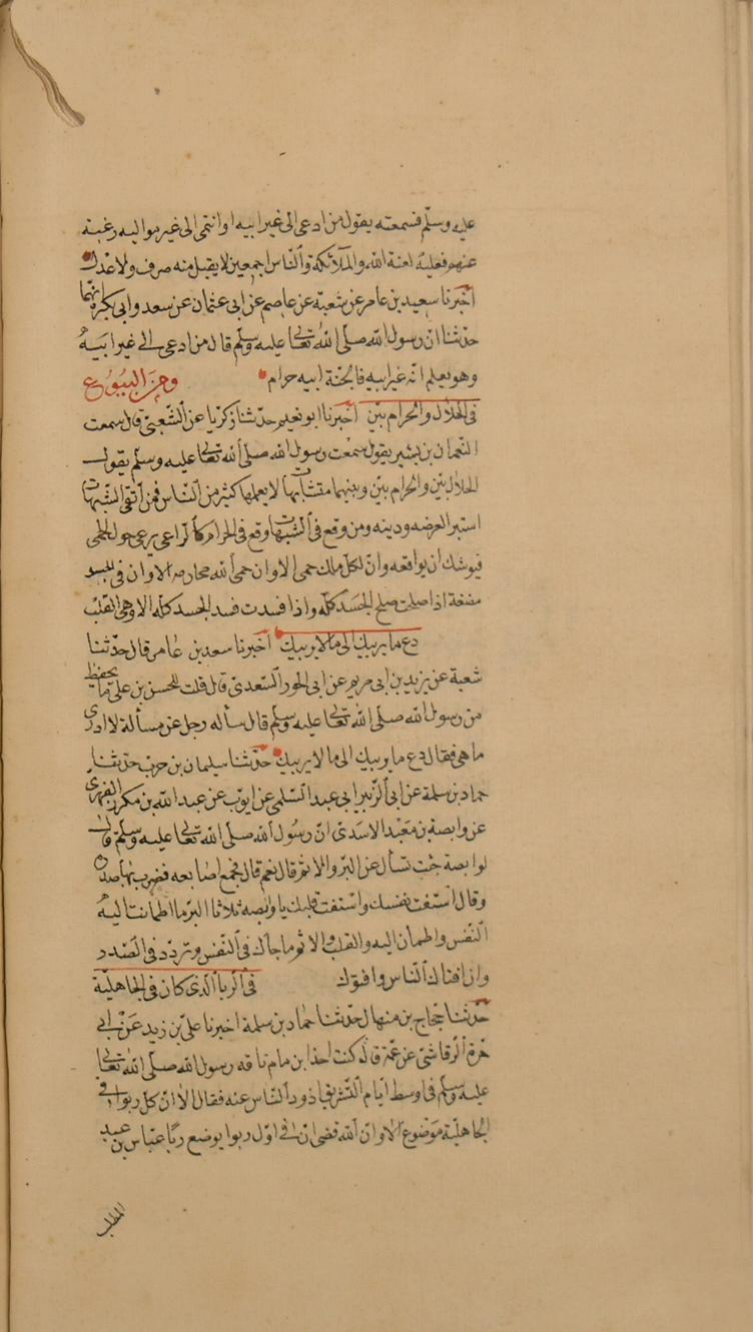 عليه وسلّم فسمعته يقول من ادعى الى غير ابيه او انتمى الى غير مواليه رغبة
عنهم فعليه لعنة الله والملآئكة والنّاس اجمعين لا يقبل منه صرف ولا عدل
اخبرنا سعيد بن عامر عن شعبة عن عاصم عن ابى عثمان عن سعد وابى بكرة انهما
حدّثنا انّ رسول الله صلى الله تعالى عليه وسلّم قال من ادعى الى غير ابيه
وهو يعلم انّه غير ابيه فالجنّة عليه حرام ومن البيوع
فى الحلال والحرام بيّن اخبرنا ابو نعيم حدّثنا زكريّا عن الشّعبىّ قال سمعت
النّعمان بن بشير يقول سمعت رسول الله صلى الله تعالى عليه وسلّم يقول
الحلال بيّن والحرام بيّن وبينهما متشابهات لا يعلمها كثير من النّاس فمن اتقى الشّبهات
استبرا لعرضه ودينه ومن وقع فى الشّبهات وقع فى الحرام كالرّاعى يرعى حول الحمى
فيوشك ان يواقعه وانّ لكلّ ملك حمى الا وان حمى الله محارمه الا وان فى الجسد
مضغة اذا صلحت صلح الجسد كلّه واذا فسدت فسد الجسد كلّه الا وهى القلب
دع ما يريبك الى ما لا يريبك اخبرنا سعد بن عامر قال حدّثنا
شعبة عن يزيد بن ابى مريم عن ابى الحورآ السّعدىّ قال قلت للحسن بن علىّ ما تحفظ
من رسول الله صلى الله تعالى عليه وسلّم قال سأله رجل عن مسألة لا ادرى
ما هى فقال دع ما يريبك الى ما لا يريبك حدّثنا سليمان بن حرب حدّثنا
حماد بن سلمة عن ابى الزّبير ابى عبد السّلمى عن ايوب عن عبد الله بن مكرز الفهرى
عن وابصة بن معبد الاسدىّ انّ رسول الله صلى الله تعالى عليه وسلّم قال
لوابصة جئت تسأل عن البرّ والاثم قال نعم قال فجمع اصابعه فضرب بها صدره
وقال استفت نفسك واستفت قلبك يا وابصه ثلاثا البرّ ما اطمانت اليه
النّفس واطمان اليه القلب والاثم ما حاك فى النّفس وتردّد فى الصّدر
وان افتاك النّاس وافتوك فى الرّبا الّذى كان فى الجاهليّة
حدّثنا حجاج بن منهال حدّثنا حماد بن سلمة اخبرنا علىّ بن زيد عن ابى
حرة الرّقاشىّ عن عمّه قال كنت اخذا بزمام ناقه رسول الله صلّى الله تعالى
عليه وسلّم فى اوسط ايام التّشريق اذود النّاس عنه فقال الا انّ كلّ ربوا فى
الجاهليّة موضوع الا وانّ الله قضى انّ اوّل ربوا يوضع ربا عبّاس بن عبد
المطلب